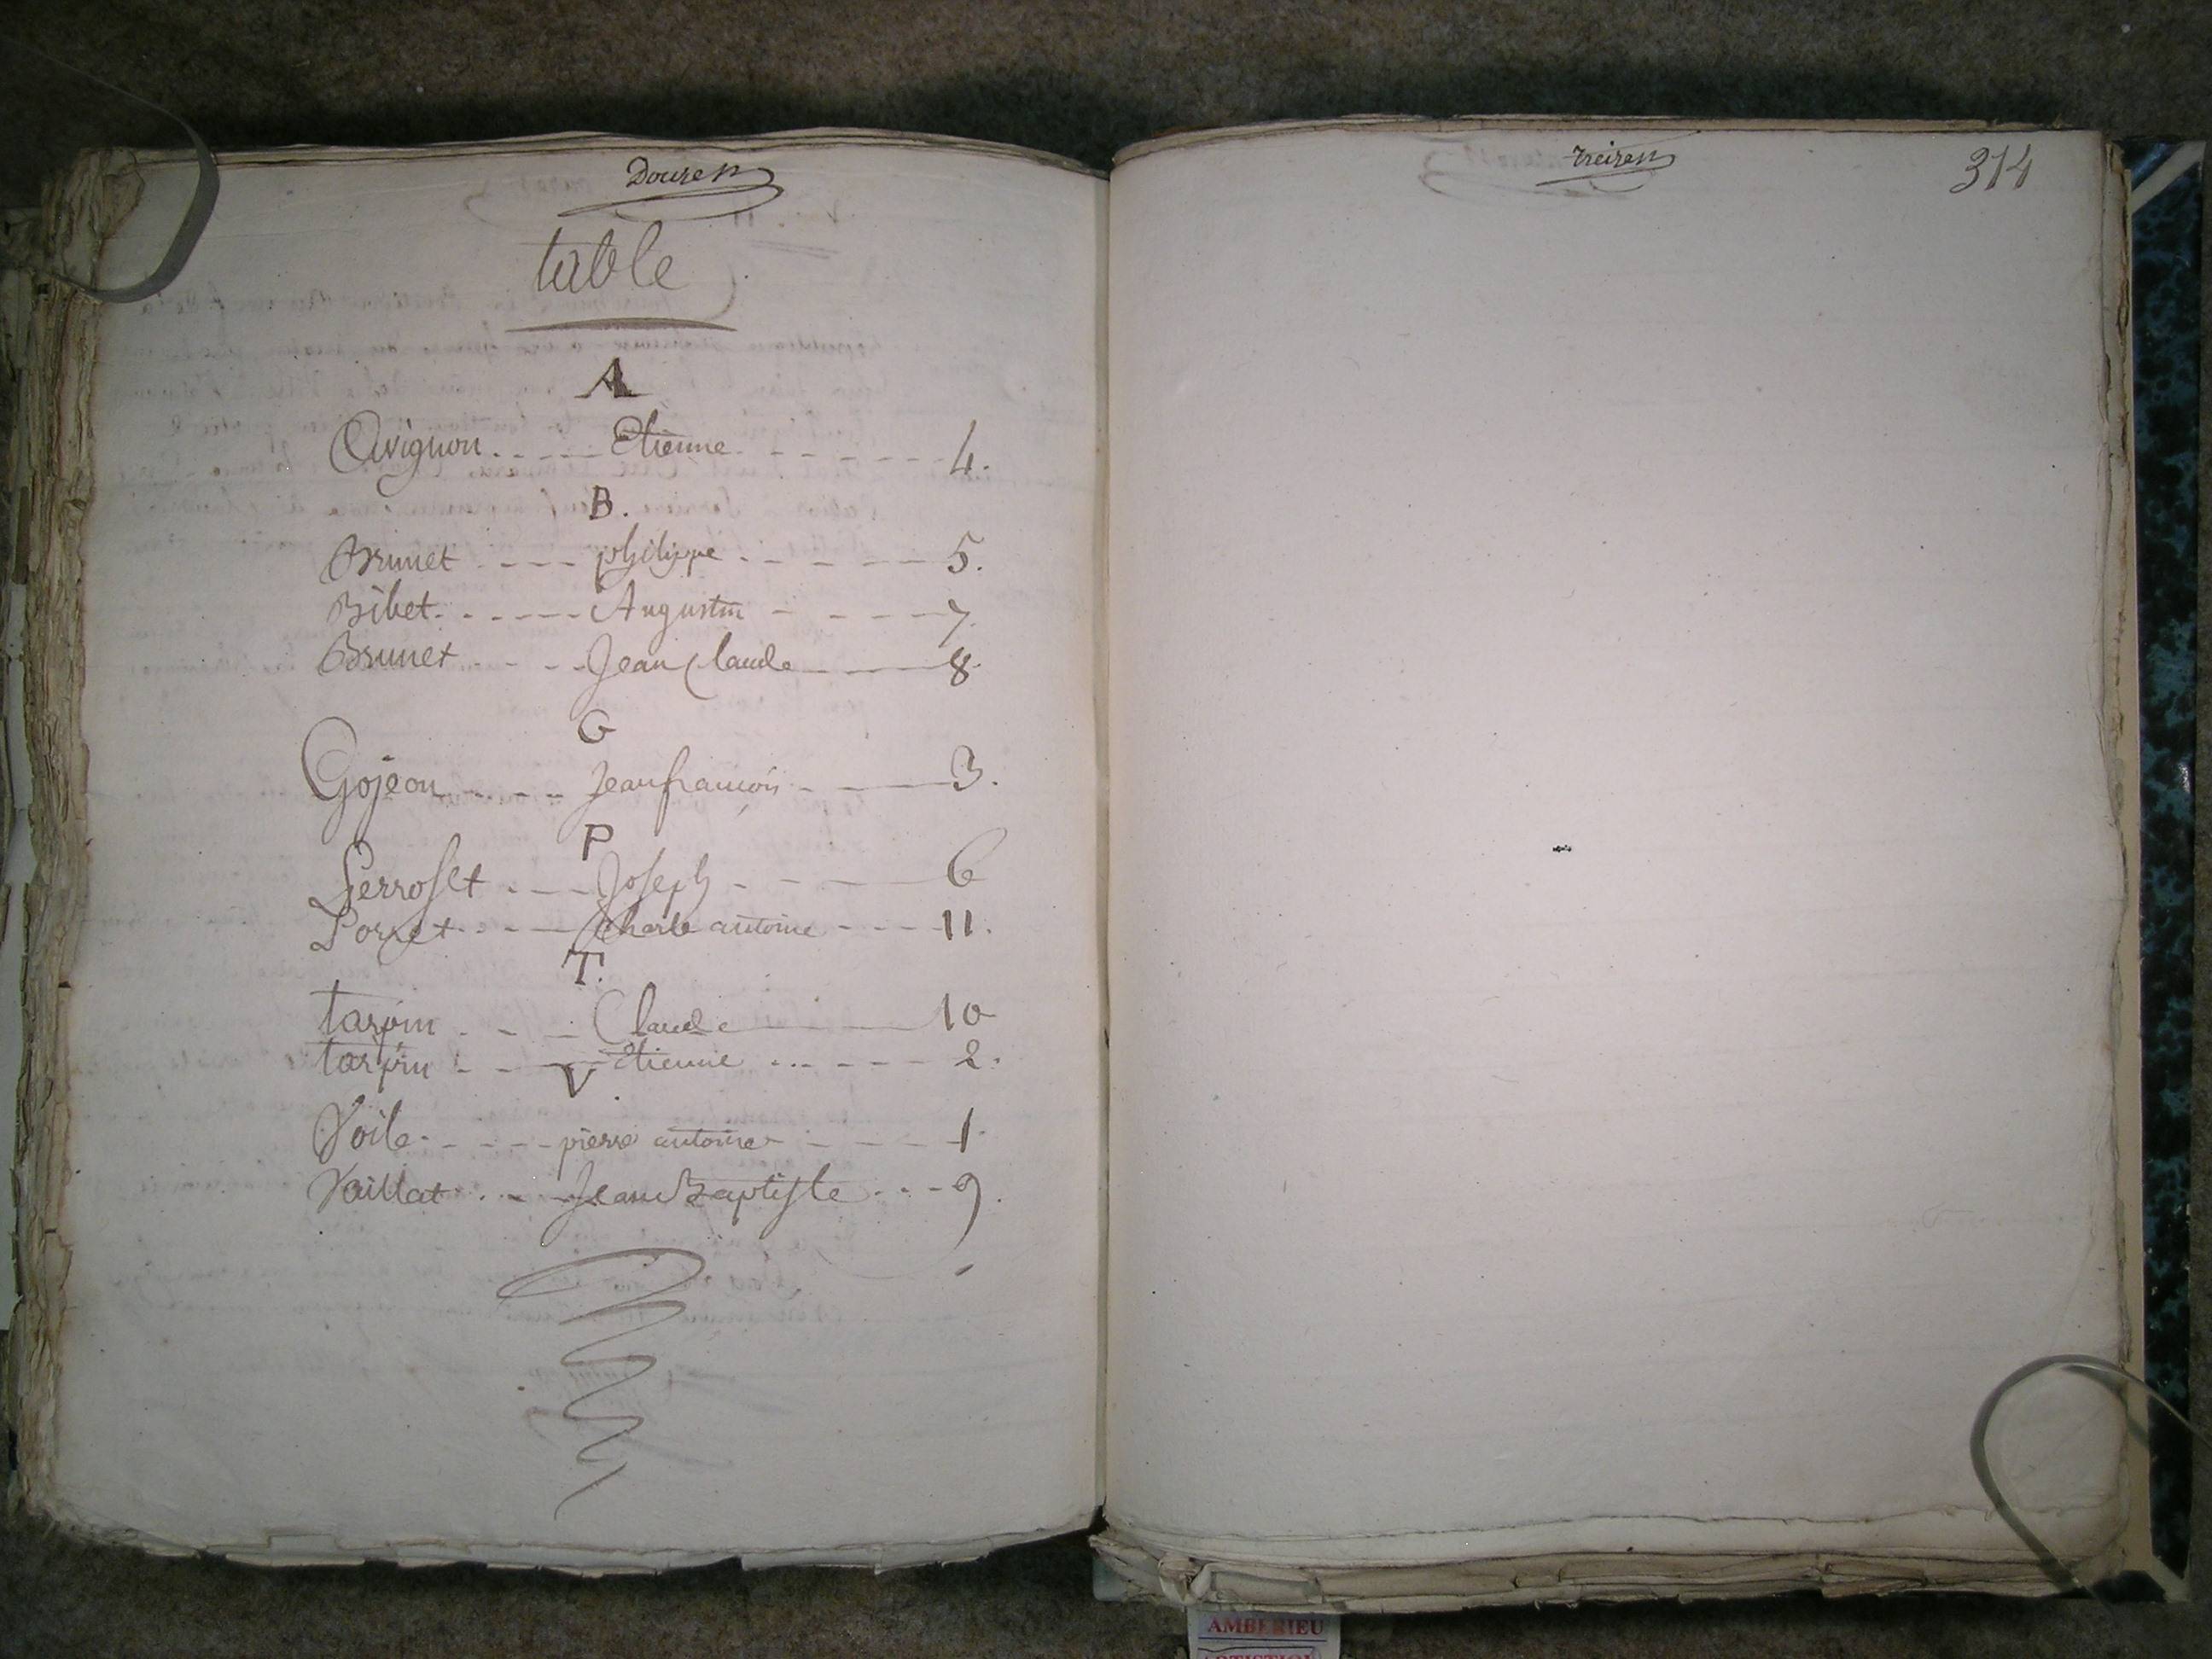 Douzen
table
A
Avignon . . _ _ _ Etienne . _ _ _ _ _ _ _ 4.
B.
Brunet . _ _ _ philippe . _ _ _ _ _ 5.
Bibet . . _ _ _ _ Augustin _ _ _ _ _ 7.
Brunet _ _ _ _ Jean Claude _ _ _ 8.
G
Gojeon _ . _ _ Jean françois _ _ 3.
P
Perroset . _ _ Joseph _ _ _ 6
Porret . . _ _ Charle antoine _ _ _ 11.
T.
tarpin . _ _ Claude _ _ 10
tarpin _ _ _ Etienne ... _ _ _ 2.
V
Voile . _ _ _ _ pierre antoine _ _ _ 1.
Vaillat . . _ Jean Baptiste . . . 9.
treizen
314
AMBERIEU